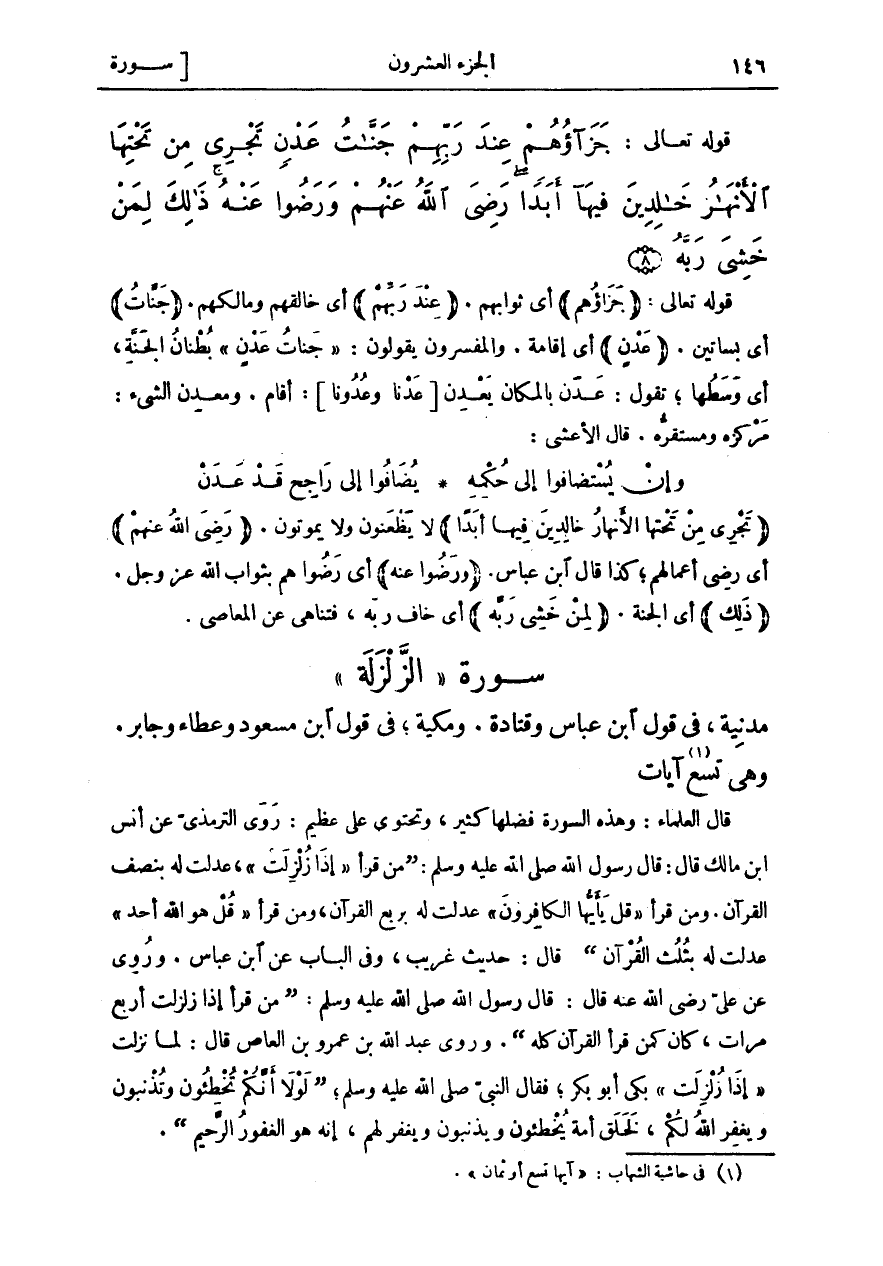 ١٤٦ الجزء العشرون [ ســـورة
قوله تعـالى : جَزَآؤُهُـمْ عِندَ رَبِّهِـمْ جَنَّـٰتُ عَدْنٍ تَجْـرِى مِن تَحْتِهَا
ٱلْأَنْهَـٰرُ خَـٰلِدِينَ فِيهَآ أَبَدًا ۖ رَضِىَ ٱللَّهُ عَنْهُـمْ وَرَضُوا عَنْـهُ ۚ ذَٰلِكَ لِمَنْ
خَشِىَ رَبَّهُ ۝٨
قوله تعالى : ﴿ جَزَاؤُهم ﴾ أى ثوابهم . ﴿ عِنْدَ رَبِّهْم ﴾ أى خالقهم ومالكهم . ﴿ جَنَّاتُ ﴾
أى بساتين . ﴿ عَدْنٍ ﴾ أى إقامة . والمفسرون يقولون : « جَناتُ عَدْنٍ » بُطْنانُ الجَنَّةِ ،
أى وَسَطُها ؛ تقول : عَـدَن بالمكان يَعْـدِن [ عَدْنا وعُدُونا ] : أقام . ومعـدِن الشىء :
مَرْكزه ومستقرُّه . قال الأعشى :
وإنْ يُسْتضافوا إلى حُكْمِهِ * يُضَافُوا إلى رَاجح قَـدْ عَـدَنْ
﴿ تَجْرِى مِنْ تَحْتها الأنهارُ خالِدِينَ فِيهـا أبَدًا ﴾ لا يَظْعَنون ولا يموتون . ﴿ رَضِىَ اللهُ عنهمْ ﴾
أى رضى أعمالهم ؛ كذا قال ٱبن عباس . ﴿ ورَضُوا عنه ﴾ أى رَضُوا هم بثواب الله عز وجل .
﴿ ذَلِك ﴾ أى الجنة . ﴿ لِمنْ خَشِى رَبَّه ﴾ أى خاف ربّه ، فتناهى عن المعاصى .
ســـورة « الزَّلْزَلَة »
مدنِية ، فى قول ٱبن عباس وقتادة . ومكية ؛ فى قول ٱبن مسعود وعطاء وجابر .
وهى تسع(١) آيات
قال العلماء : وهذه السورة فضلها كثير ، وتحتوى على عظيم : رَوَى الترمذىّ عن أنس
ابن مالك قال : قال رسول الله صلى الله عليه وسلم : ”من قرأ « إذَا زُلْزِلَتْ » ، عدلت له بنصف
القرآن . ومن قرأ « قل يَأَيُّها الكافِرونَ » عدلت له بربع القرآن ، ومن قرأ « قُلْ هو الله أحد »
عدلت له بثُلُث القُرْآن “ قال : حديث غريب ، وفى البـاب عن ٱبن عباس . ورُوِى
عن علىّ رضى الله عنه قال : قال رسول الله صلى الله عليه وسلم : ” من قرأ إذا زلزلت أربع
مرات ، كان كمن قرأ القرآن كله “ . وروى عبد الله بن عمرو بن العاص قال : لمـا نزلت
« إذَا زُلْزِلَت » بكى أبو بكر ؛ فقال النبىّ صلى الله عليه وسلم ؛ ” لَوْلَا أنَّكُمْ تُخْطِئُون وتُذْنبون
ويغفر اللهُ لكُمْ ، لَخَلَق أمة يُخْطئون ويذنبون ويغفر لهم ، إنه هو الغفورُ الرَّحيم “ .
(١) فى حاشية الشهاب : « آيها تسع أو ثمان » .